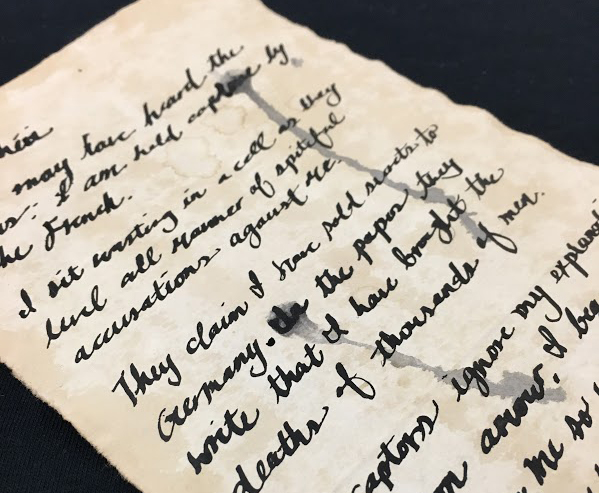 may have heard the
I am held captive by
the French.
I sit wasting in a cell as they
level all manner of spiteful
accusations against me
They claim I have sold secrets to
Germany. In the papers they
write that I have brought the
deaths of thousands of men.
captors ignore my
amour. I beg
me so